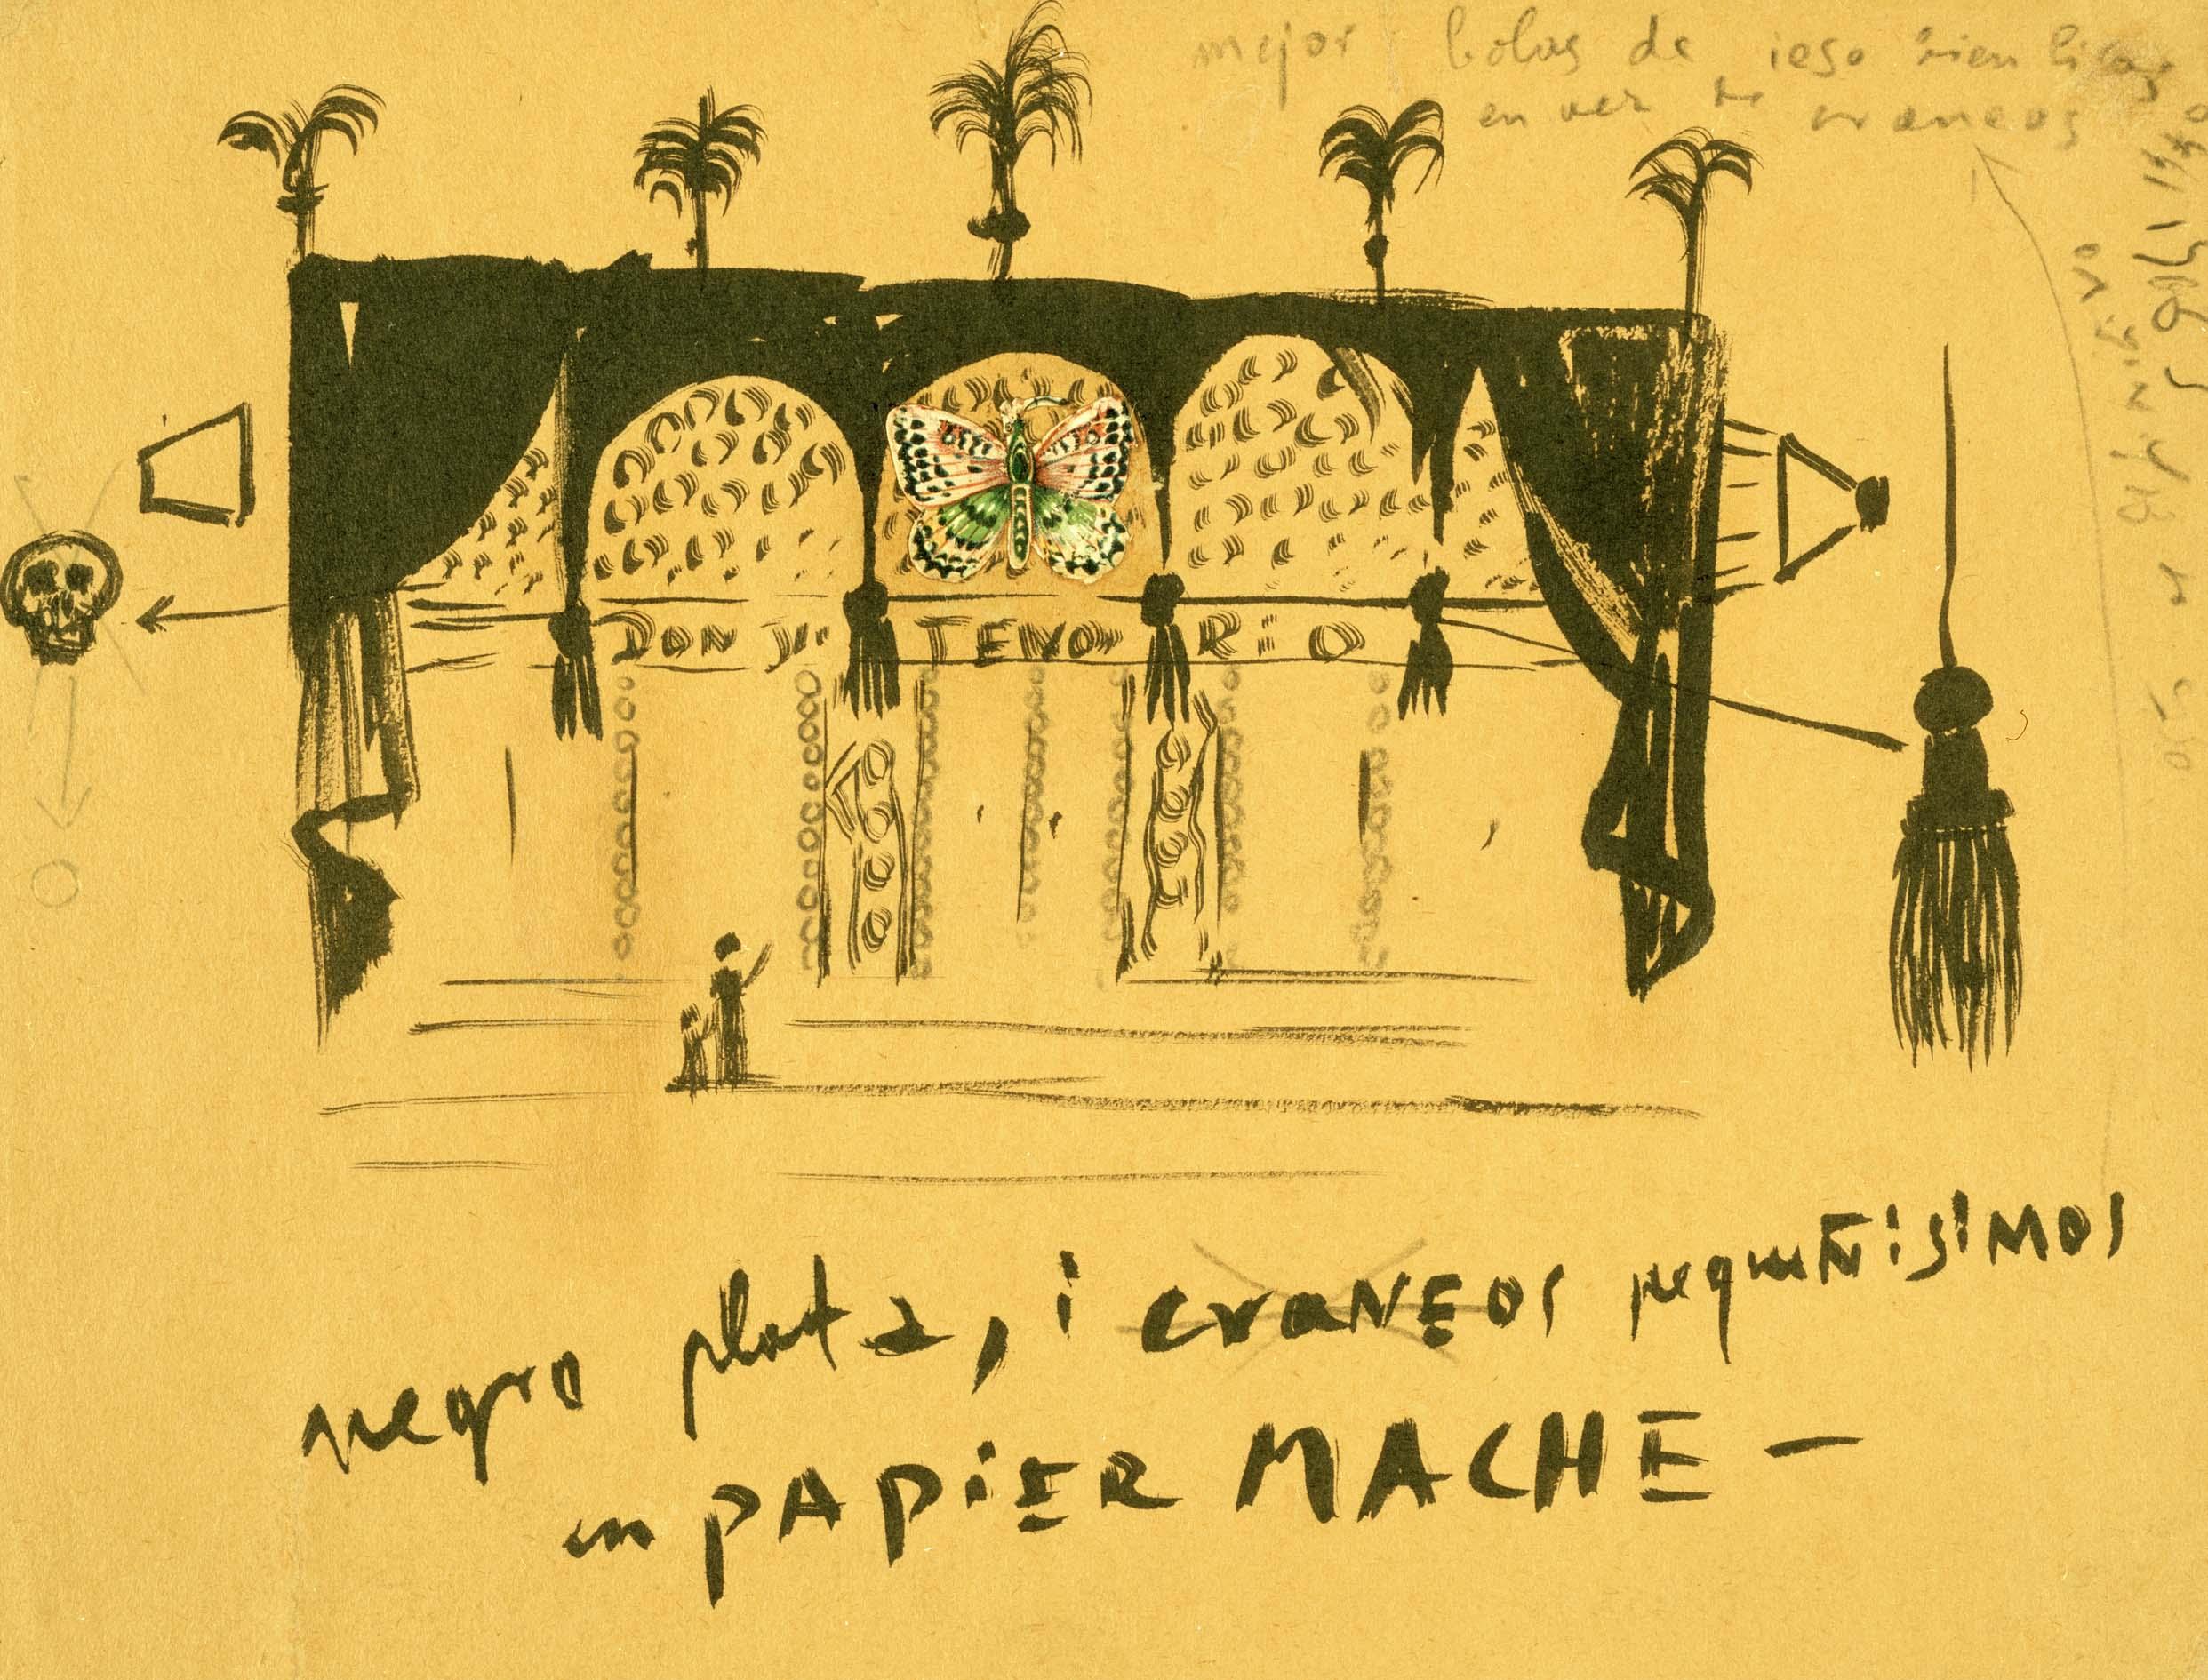 mejor bolas de ieso bien lisas
en vez de craneos
DON Ju TENORIO
negro plata, i craneos pequeñisimos
en PAPiER MACHE —
esto es definitivo